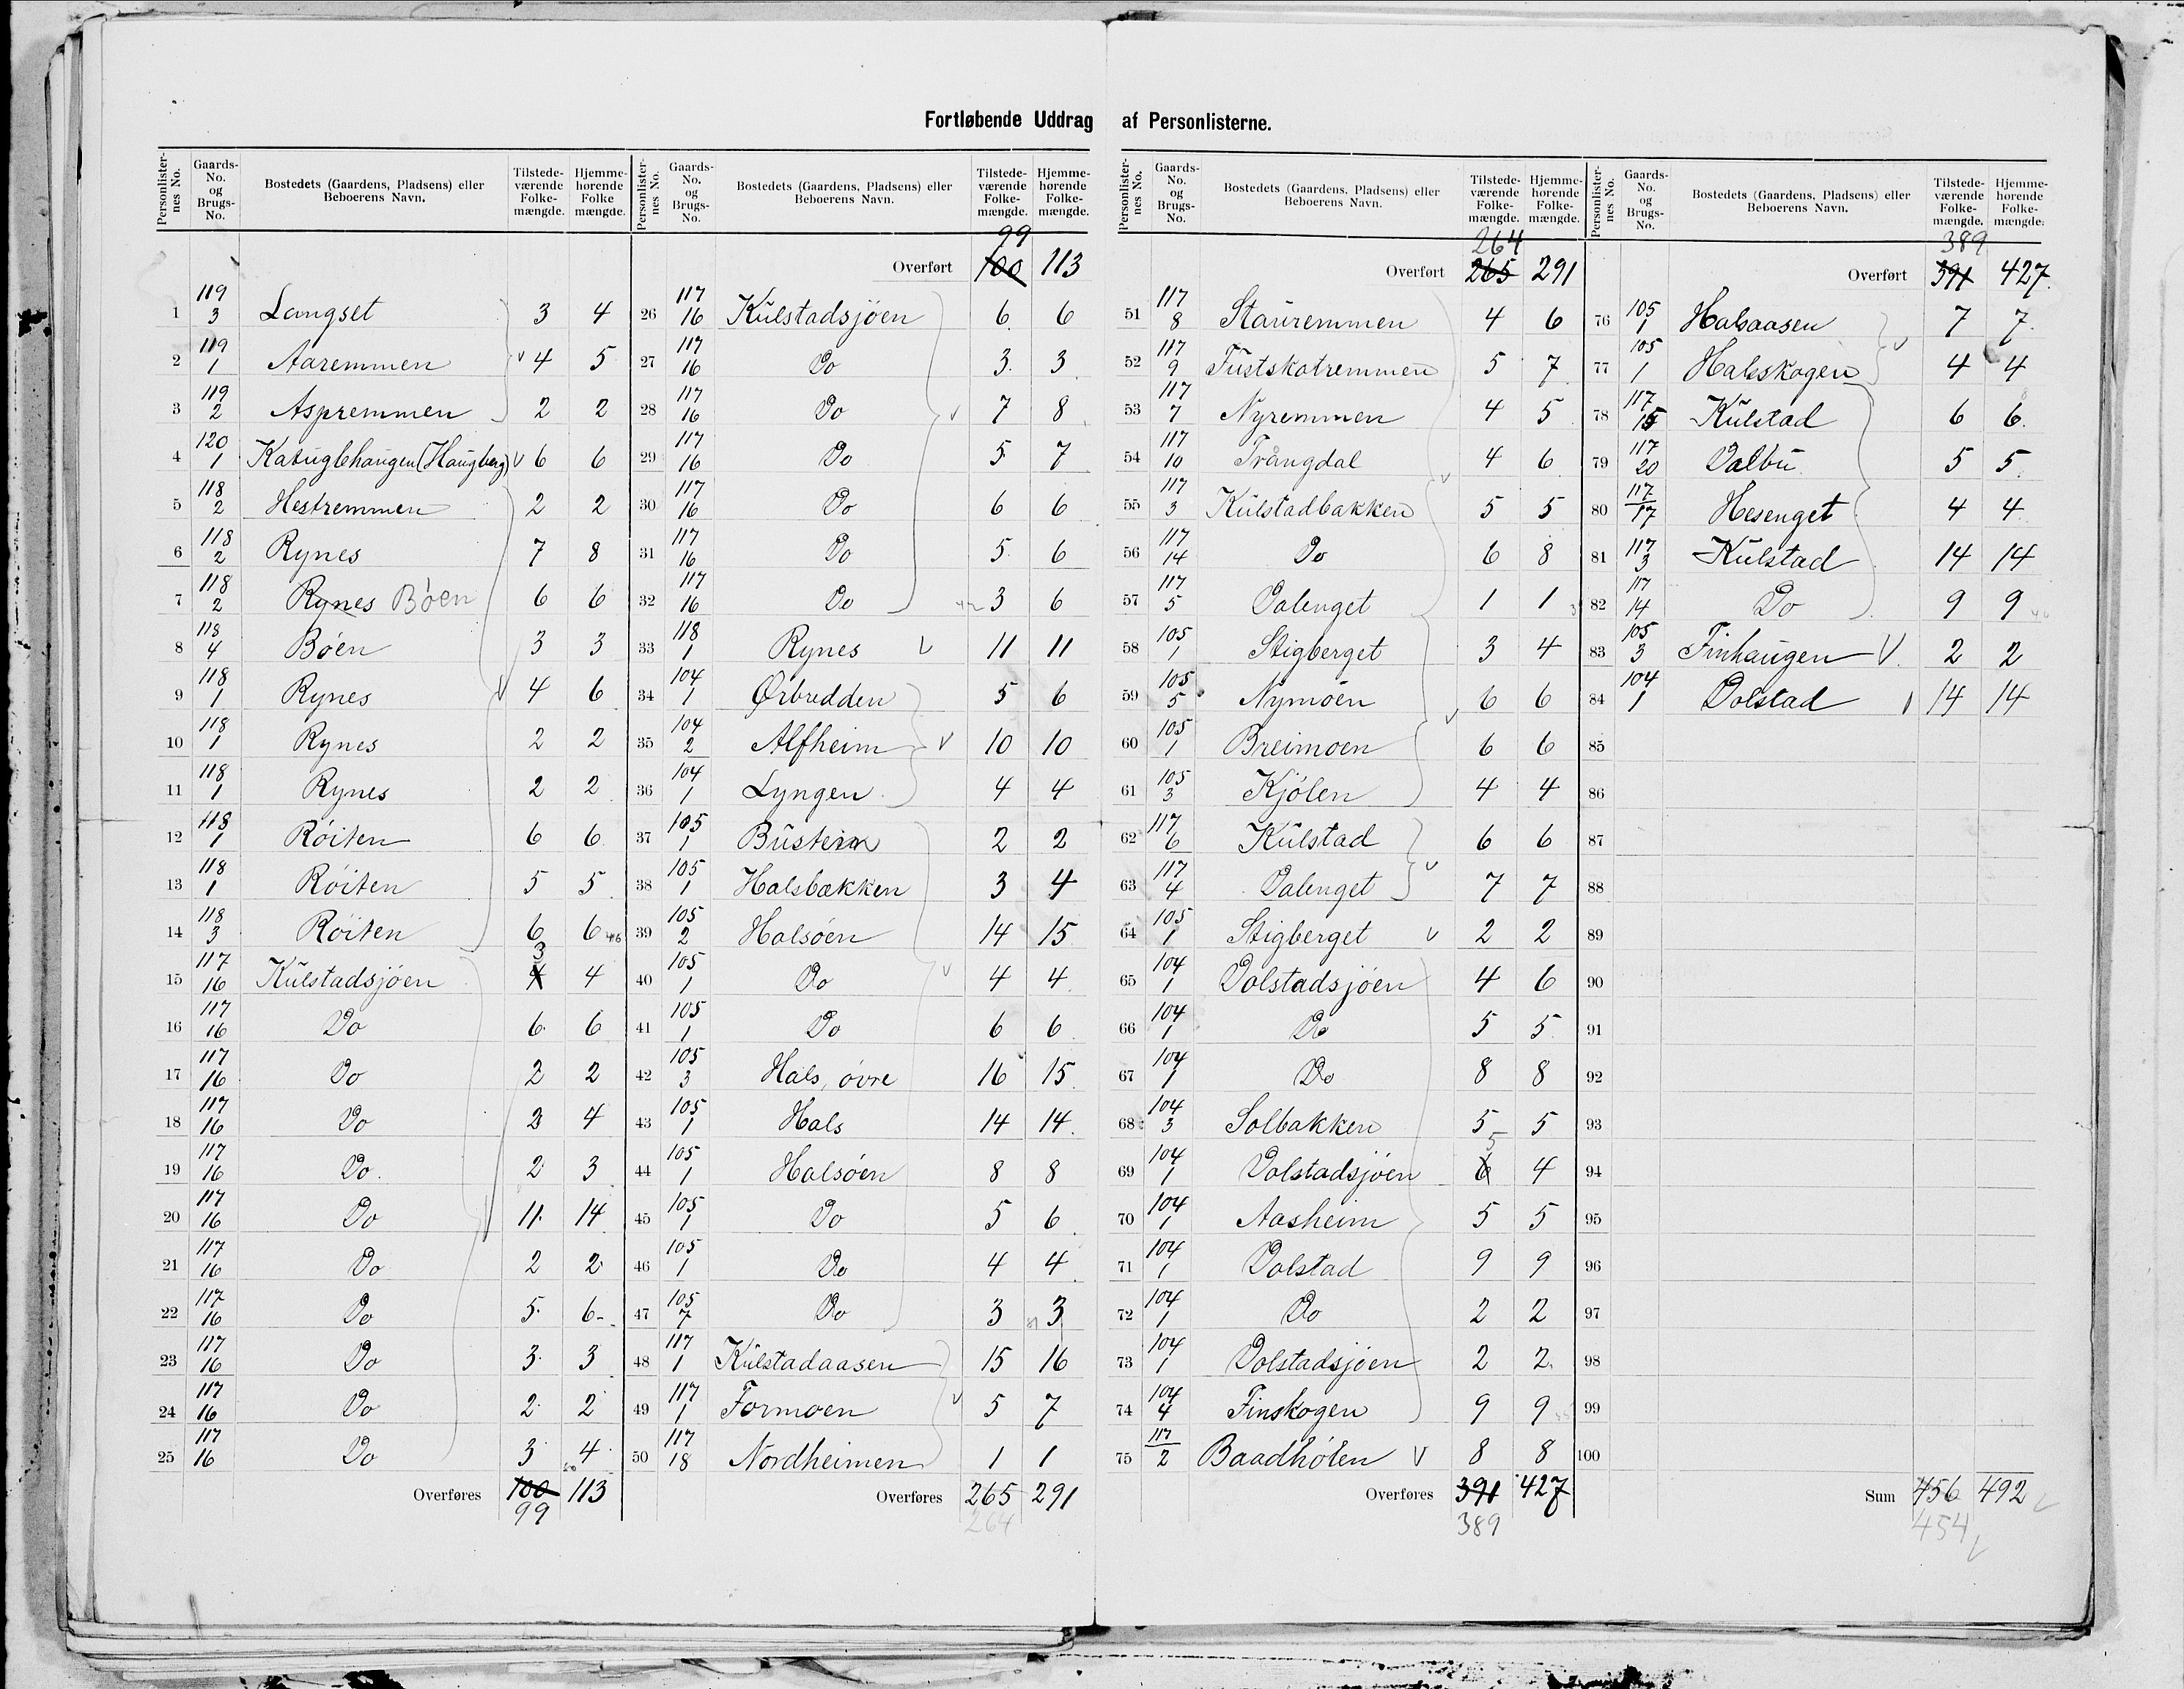 Fortløbende Uddrag af Personlisterne.
Personlister-nes No. Gaards-No. og Brugs-No. Bostedets (Gaardens, Pladsens) eller Beboerens Navn. Tilstede-værende Folke-mængde. Hjemme-hørende Folke mængde.
1 119/3 Langset 3 4
2 119/1 Aaremmen 4 5
3 119/2 Aspremmen 2 2
4 120/1 Katuglehaugen (Haugberg) 6 6
5 118/2 Hestremmen 2 2
6 118/2 Rynes 7 8
7 118/2 Rynes Bøen 6 6
8 118/4 Bøen 3 3
9 118/1 Rynes 4 6
10 118/1 Rynes 2 2
11 118/1 Rynes 2 2
12 118/1 Røiten 6 6
13 118/1 Røiten 5 5
14 118/3 Røiten 6 6
15 117/16 Kulstadsjøen 4 3 4
16 117/16 Do 6 6
17 117/16 Do 2 2
18 117/16 Do 2 4
19 117/16 Do. 2 3
20 117/16 Do 11 14
21 117/16 Do 2 2
22 117/16 Do 5 6
23 117/16 Do 3 3
24 117/16 Do 2 2
25 117/16 Do 3 4
Overføres 100 113
99
Personlister-nes No. Gaards-No. og Brugs-No. Bostedets (Gaardens, Pladsens) eller Beboerens Navn. Tilstede-værende Folke-mængde. Hjemme-hørende Folke-mængde.
99
Overført 100 113
26 117/16 Kulstadsjøen 6 6
27 117/16 Do 3 3
28 117/16 Do 7 8
29 117/16 Do 5 7
30 117/16 Do 6 6
31 117/16 Do 5 6
32 117/16 Do 3 6
33 118/1 Rynes 11 11
34 104/1 Ørbredden 5 6
35 104/2 Alfheim 10 10
36 104/1 Lyngen 4 4
37 105/1 Busteim 2 2
38 105/1 Halsbækken 3 4
39 105/2 Halsøen 14 15
40 105/1 Do 4 4
41 105/1 Do 6 6
42 105/3 Hals, øvre 16 15
43 105/1 Hals 14 14
44 105/1 Halsøen 8 8
45 105/1 Do 5 6
46 105/1 Do 4 4
47 105/7 Do 3 3
48 117/1 Kulstadaasen 15 16
49 117/1 Formoen 5 7
50 117/18 Nordheimen 1 1
Overføres 265 291
264
Personlister-nes No. Gaards-No. og Brugs-No. Bostedets (Gaardens, Pladsens) eller Beboerens Navn. Tilstede-værende Folke-mængde. Hjemme-hørende Folke-mængde.
264
Overført 265 291
51 117/8 Stauremmen 4 6
52 117/9 Tustskatremmen 5 7
53 117/7 Nyremmen 4 5
54 117/10 Trångdal 4 6
55 117/3 Kulstadbakken 5 5
56 117/14 Do 6 8
57 117/5 Dalenget 1 1
58 105/1 Stigberget 3 4
59 105/5 Nymoen 6 6
60 105/1 Breimoen 6 6
61 105/3 Kjølen 4 4
62 117/6 Kulstad 6 6
63 117/4 Dalenget 7 7
64 105/1 Stigberget 2 2
65 104/1 Dolstadsjøen 4 6
66 104/1 Do 5 5
67 104/1 Do 8 8
68 104/3 Solbakken 5 5
69 104/1 Dolstadsjøen 6 5 4
70 104/1 Aasheim 5 5
71 104/1 Dolstad 9 9
72 104/1 Do 2 2
73 104/1 Dolstadsjøen 2 2
74 104/4 Finskogen 9 9
75 117/2 Baadhølen 8 8
Overføres 391 427
389
Personlister-nes No. Gaards-No. og Brugs-No. Bostedets (Gaardens, Pladsens) eller Beboerens Navn. Tilstede-værende Folke-mængde. Hjemme-hørende Folke-mængde.
389
Overført 391 427
76 105/1 Halsaasen 7 7
77 105/1 Halsskogen 4 4
78 117/15 Kulstad 6 6
79 117/20 Dalbu 5 5
80 117/17 Hesenget 4 4
81 117/3 Kulstad 14 14
82 117/14 Do 9 9
83 105/3 Finhaugen 2 2
84 104/1 Dolstad 14 14
85
86
87
88
89
90
91
92
93
94
95
96
97
98
99
100
Sum 456 492
454